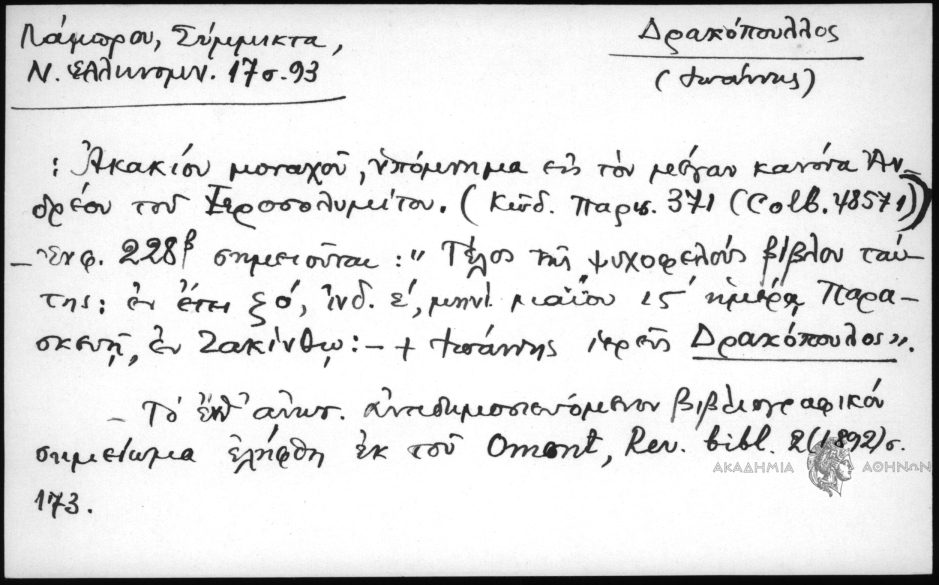 Λάμπρου, Σύμμικτα,
Ν. Ἑλληνομν. 17 σ. 93
Δρακόπουλλος
(Ἰωάννης)
: Ἀκακίου μοναχοῦ, ὑπόμνημα εἰς τὸν μέγαν κανόνα Ἀν-
δρέου τοῦ Ἱεροσολυμίτου. (Κῶδ. Παρισ. 371 (Colb. 48571))
- Ἐν φ. 228β σημειοῦται: "Τέλος τῆς ψυχοφελοῦς βίβλου ταύ-
της: ἐν ἔτει ζό, ἰνδ. έ, μηνὶ μαΐου 15 ἡμέρᾳ Παρα-
σκευῇ, ἐν Ζακίνθῳ:- + Ἰωάννης ἱερεὺς Δρακόπουλος".
- Τὸ ἀναδημοσιευόμενον βιβλιογραφικόν
σημείωμα ἐλήφθη ἐκ τοῦ Omont, Rev. bibl. 2 (1892) σ.
173.
ΑΚΑΔΗΜΙΑ ΑΘΗΝΩΝ